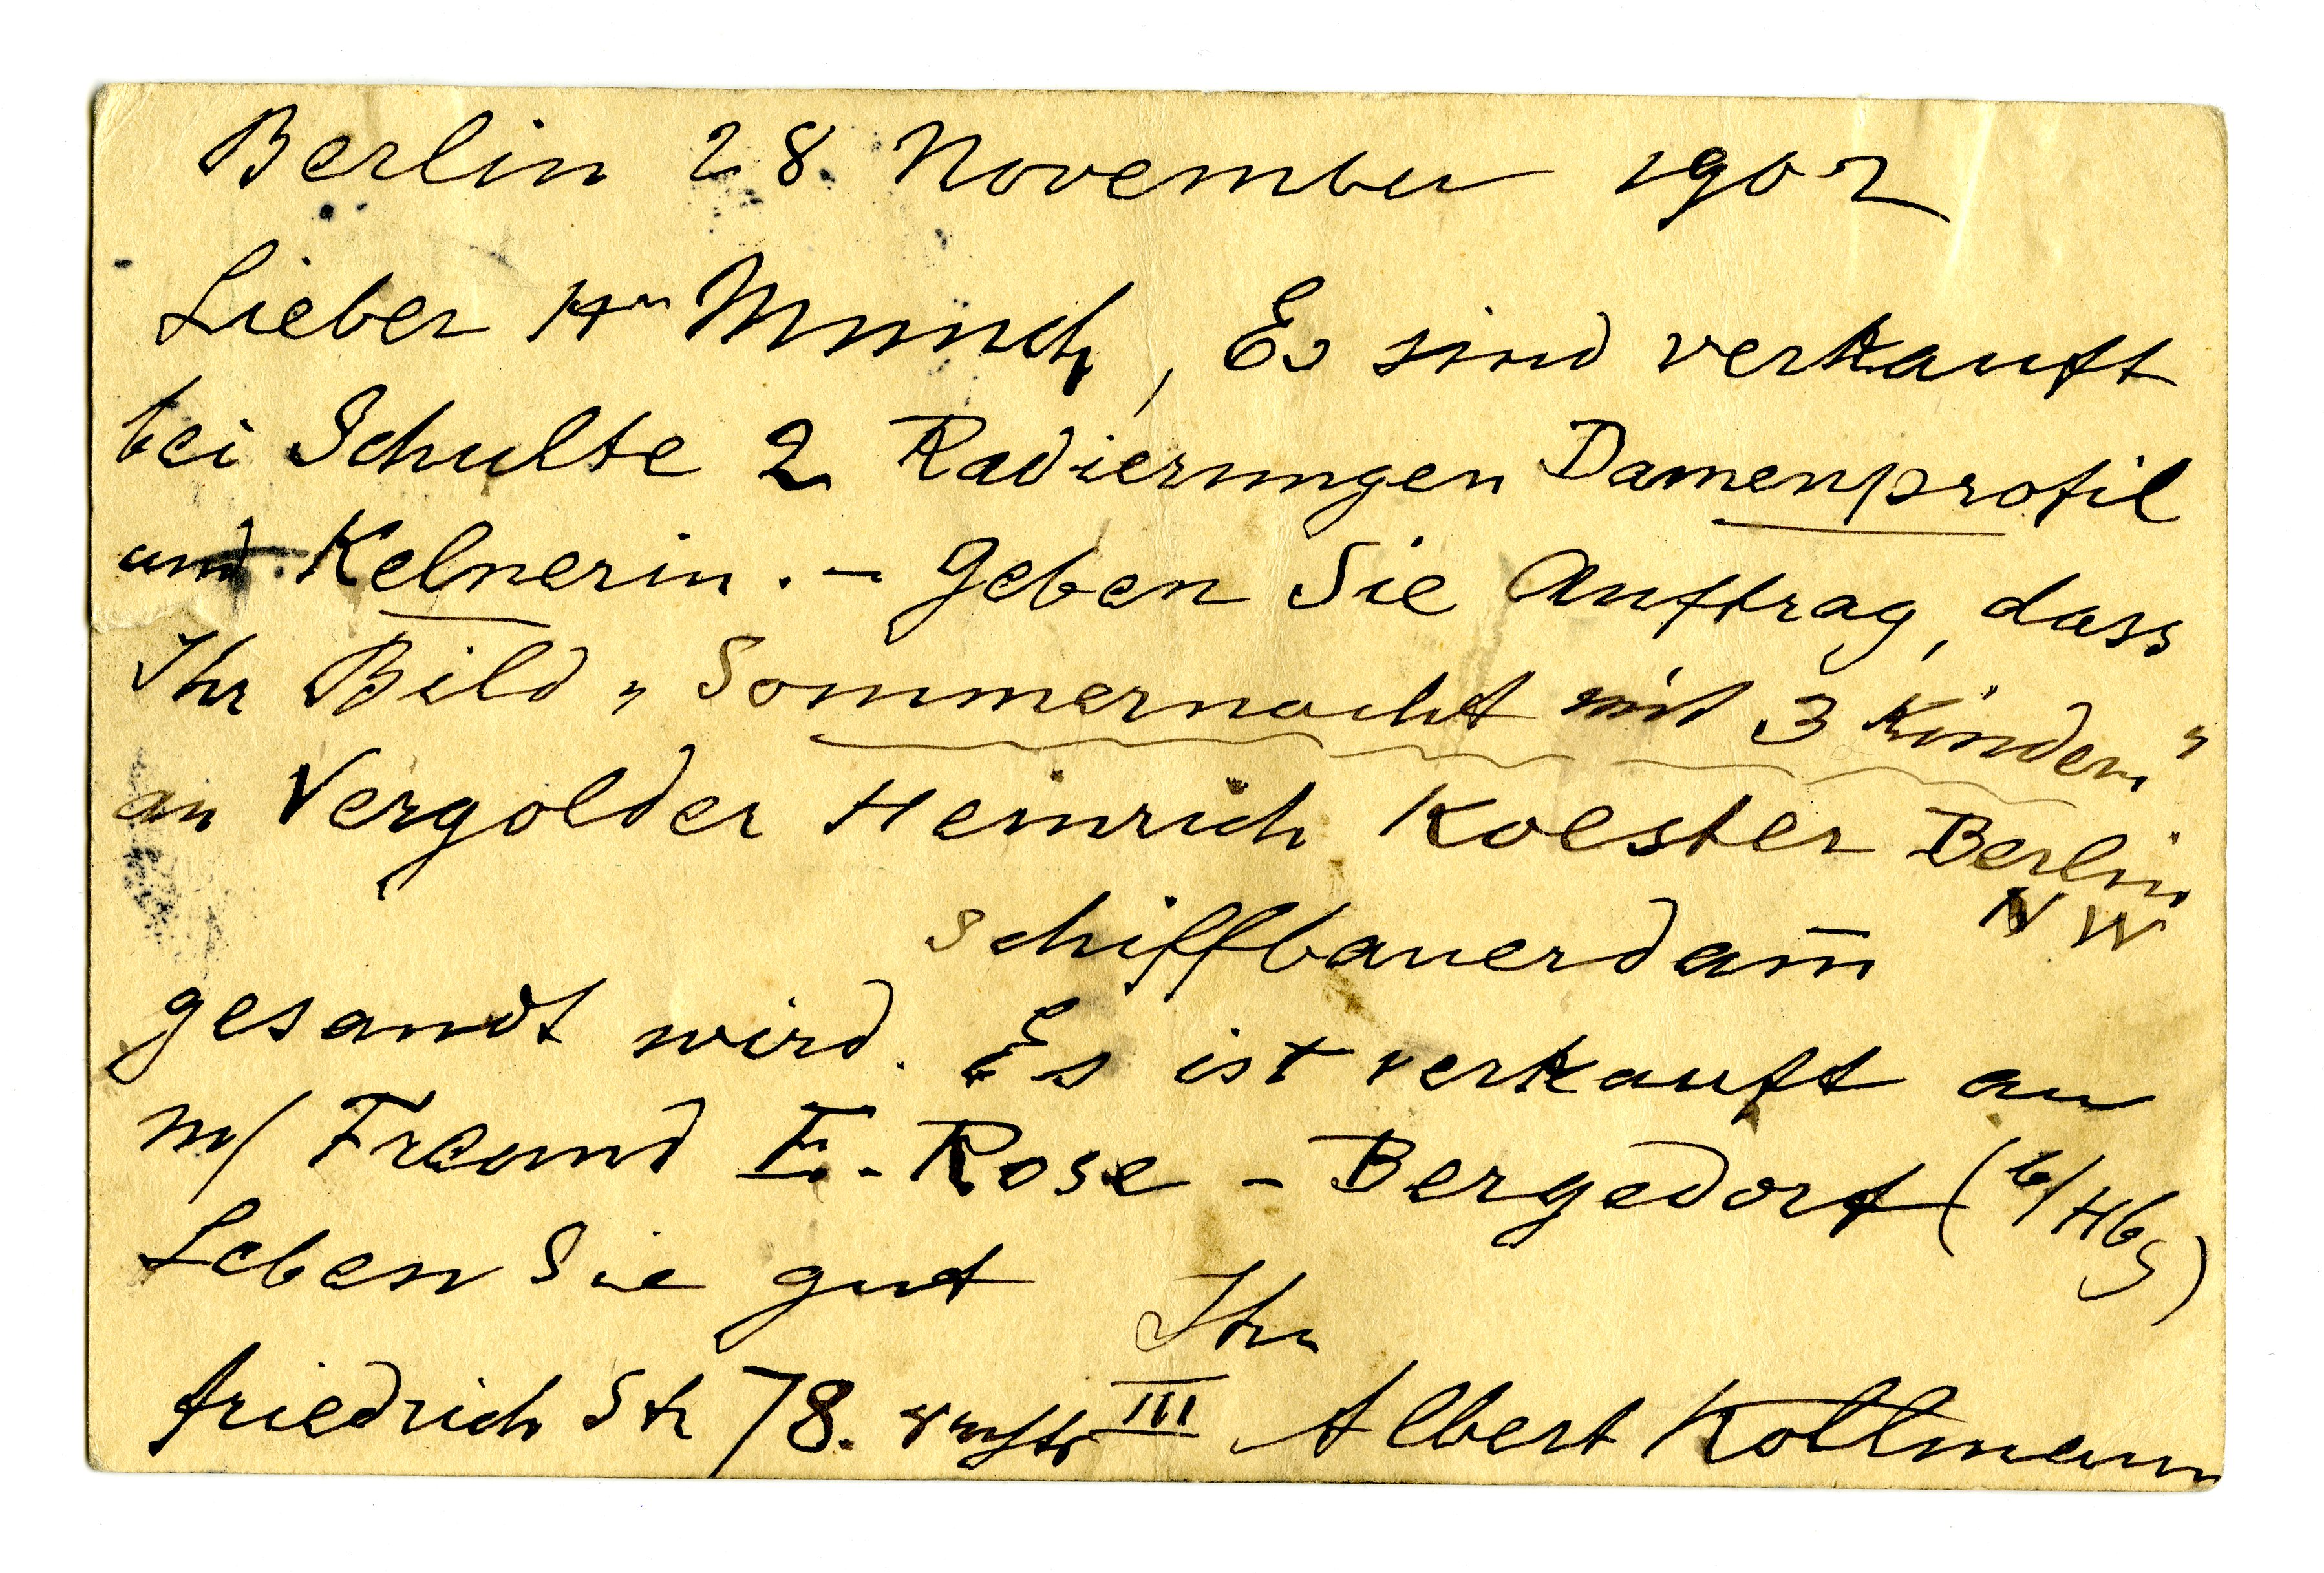 Berlin 28. November 1902
Lieber Hrn Munch, Es sind verkauft
bei Schulte 2 Radierungen Damenprofil
und Kelnerin. – Geben Sie Auftrag, dass
Ihr Bild „Sommernacht mit 3 Kindern"
an Vergolder Heinrich Koester Berlin
NW
Schiffbauerdam̅
gesandt wird. Es ist verkauft an
m/ Freund E. Rose – Bergedorf (b/Hbg)
Leben Sie gut Ihr
Friedrich Str 78. III Albert Kollmann